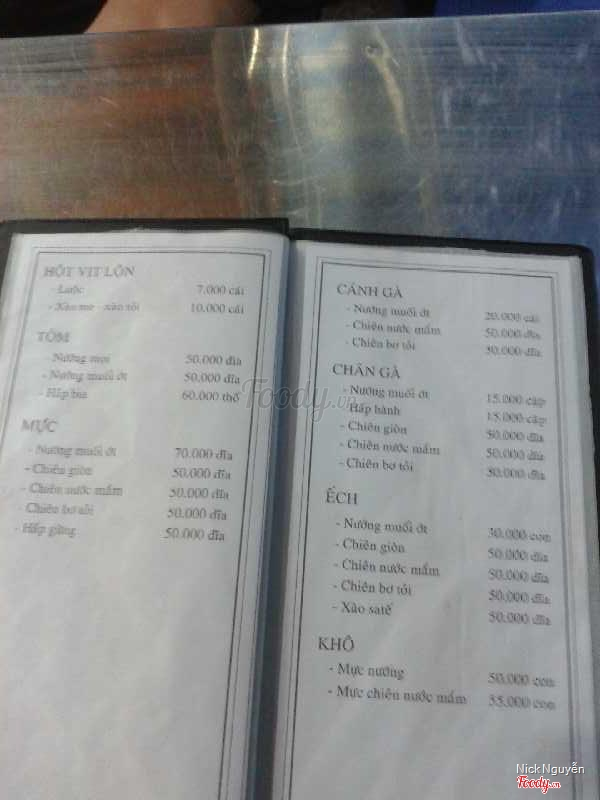 HỘT VỊT LỘN
- Luộc 7.000 cái
- Xào me - xào tỏi 10.000 cái
TÔM
- Nướng mọi 50.000 đĩa
- Nướng muối ớt 50.000 đĩa
- Hấp bia 60.000 thố
MỰC
- Nướng muối ớt 70.000 đĩa
- Chiên giòn 50.000 đĩa
- Chiên nước mắm 50.000 đĩa
- Chiên bơ tỏi 50.000 đĩa
- Hấp gừng 50.000 đĩa
CÁNH GÀ
- Nướng muối ớt 20.000 cái
- Chiên nước mắm 50.000 đĩa
- Chiên bơ tỏi 50.000 đĩa
CHÂN GÀ
- Nướng muối ớt 15.000 cặp
- Hấp hành 15.000 cặp
- Chiên giòn 50.000 đĩa
- Chiên nước mắm 50.000 đĩa
- Chiên bơ tỏi 50.000 đĩa
ẾCH
- Nướng muối ớt 30.000 con
- Chiên giòn 50.000 đĩa
- Chiên nước mắm 50.000 đĩa
- Chiên bơ tỏi 50.000 đĩa
- Xào satế 50.000 đĩa
KHÔ
- Mực nướng 50.000 con
- Mực chiên nước mắm 55.000 con
Foody.vn
Nick Nguyễn
Foody.vn